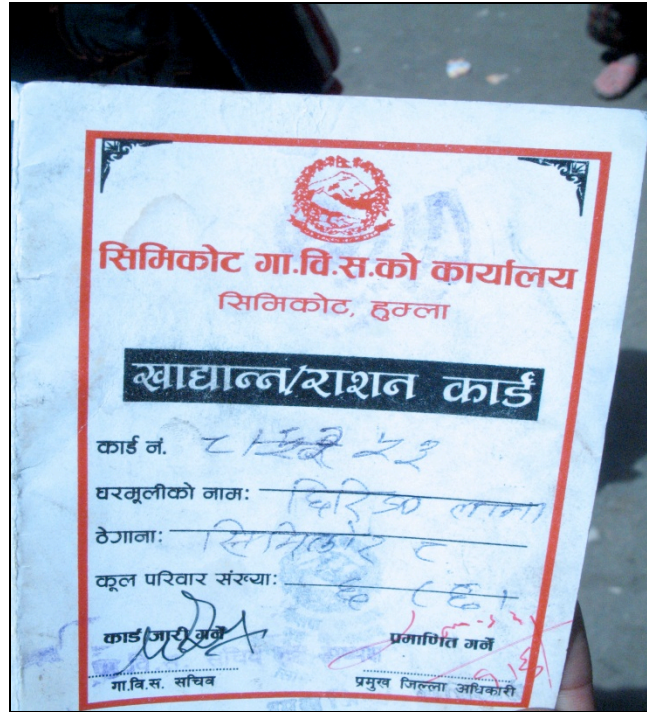 सिमिकोट गा.वि.स.को कार्यालय
सिमिकोट, हुम्ला
खाद्यान्न/राशन कार्ड
कार्ड नं. ८ ५२
घरमूलीको नाम: लामा
ठेगाना: सिमिकोट ८
कूल परिवार संख्या: ६
कार्ड जारी गर्ने
प्रमाणित गर्ने
गा.वि.स. सचिव
प्रमुख जिल्ला अधिकारी